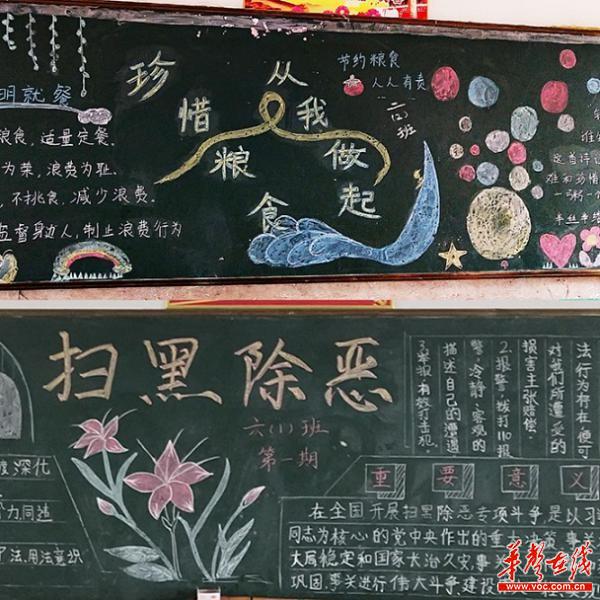 明就餐
粮食,适量定餐.
为荣,浪费为耻.
不挑食,减少浪费.
监督身边人,制止浪费行为
珍惜粮食
从我做起
节约粮食
人人有责
六(二)班
扫黑除恶
六(1)班
第一期
深化
力,同造
了法,用法意识
法行为存在,便可
对我们所遭受的
损害主张赔偿.
2.报警,拨打110报
警,冷静,客观的
描述自己的遭遇
3.举报,有
重要意义
在全国开展扫黑除恶专项斗争,是以习
同志为核心的党中央作出的重
大局稳定和国家长治久安,事
巩固,事关进行伟大斗争建设
华声在线
www.voc.com.cn